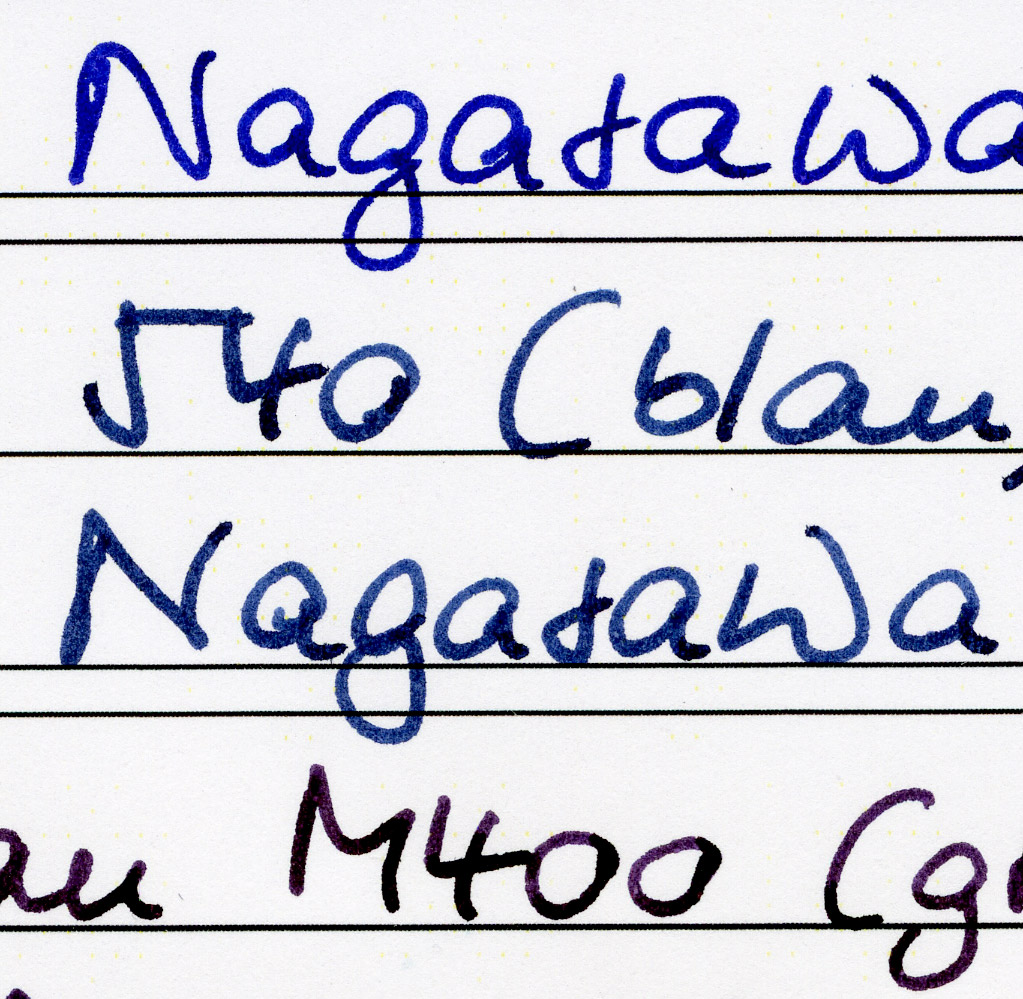 Nagasawa
540 (blau
Nagasawa
au M400 (g